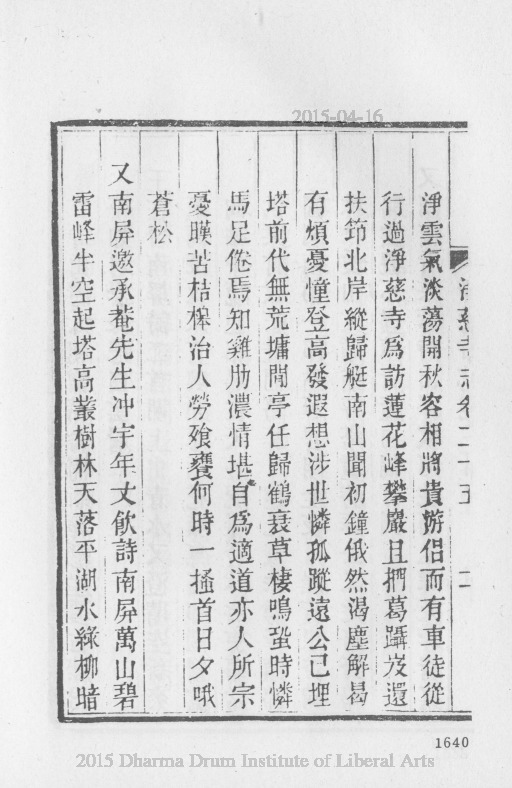 2015-04-16
淨慈寺志卷二十五 二
淨雲氣淡蕩開秋容相將貴游侶而有車徒從
行過淨慈寺爲訪蓮花峰攀巖且捫葛躡岌還
扶笻北岸縱歸艇南山聞初鐘俄然渴塵解曷
有煩憂憧登高發遐想涉世憐孤蹤遠公已埋
塔前代無荒墉閒亭任歸鶴衰草棲鳴蛩時憐
馬足倦焉知雞肋濃情堪自爲適道亦人所宗
憂嘆苦桔槹治人勞飱饔何時一搔首日夕哦
蒼松
又南屏邀承菴先生冲宇年丈飲詩南屏萬山碧
雷峰半空起塔高叢樹林天落平湖水綠柳暗
1640
2015 Dharma Drum Institute of Liberal Arts